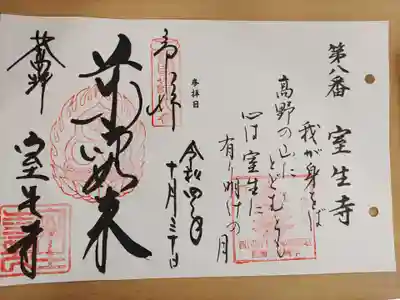 第八番 室生寺
我が身をば
高野の山に
とどむとも
心は室生に
有り明けの月
参拝日
令和四年
十月三十日
如来
室生寺